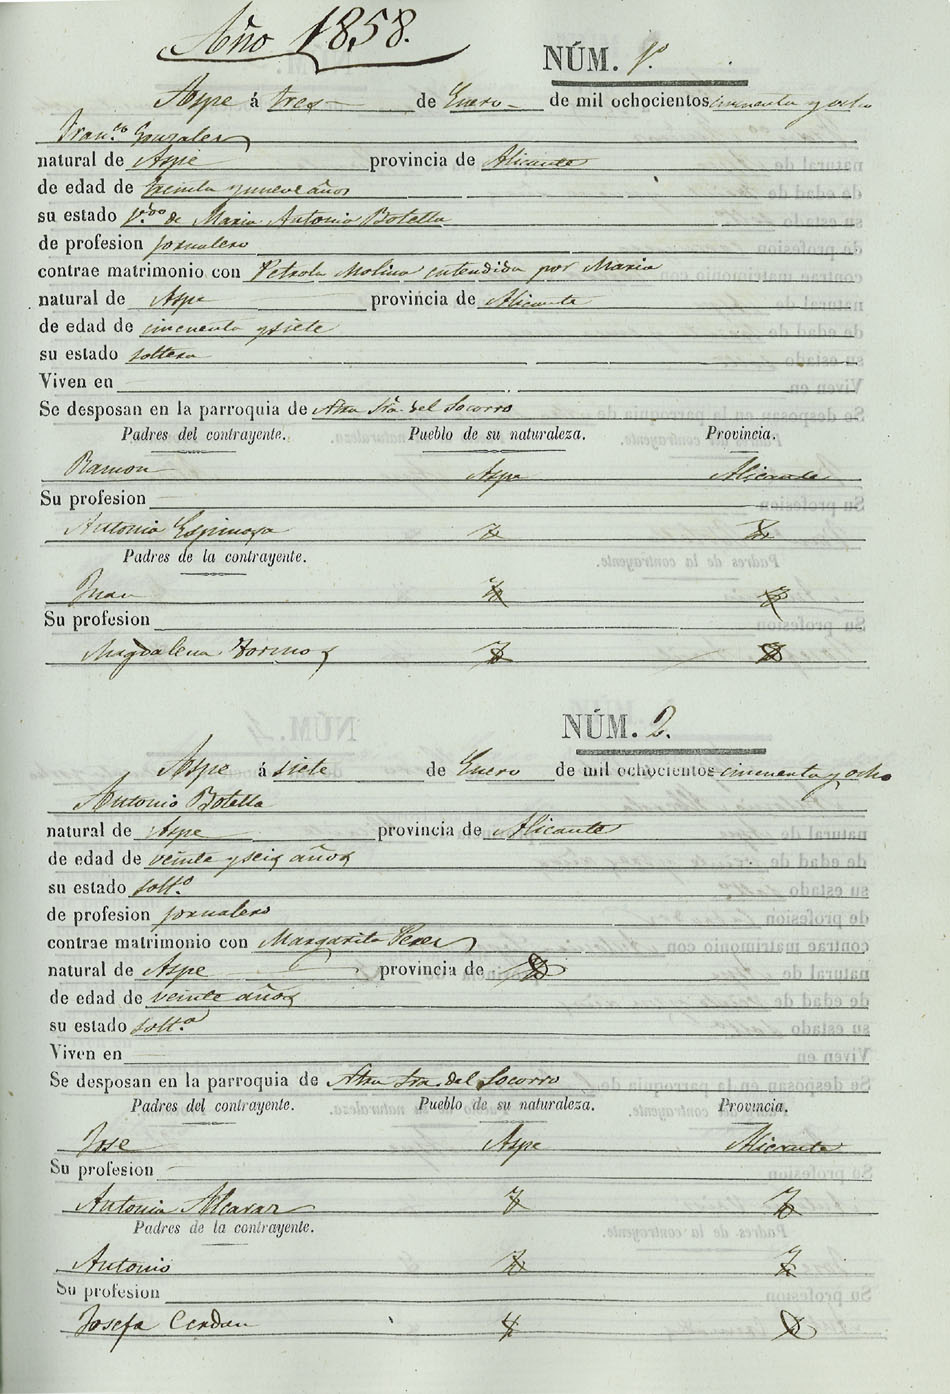 Año 1858.
NÚM. 1º
Aspe á tres de Enero de mil ochocientos cincuenta y ocho
Fran.co Gonzales
natural de Aspe provincia de Alicante
de edad de treinta y nueve años
su estado V.do de Maria Antonia Botella
de profesion jornalero
contrae matrimonio con Petrola Molina entendida por Maria
natural de Aspe provincia de Alicante
de edad de cincuenta y siete
su estado soltera
Viven en
Se desposan en la parroquia de Ntra Sra. del Socorro
Padres del contrayente. Pueblo de su naturaleza. Provincia.
Ramon Aspe Alicante
Su profesion
Antonia Espinosa
Padres de la contrayente.
Juan
Su profesion
Magdalena
NÚM. 2.
Aspe á siete de Enero de mil ochocientos cincuenta y ocho
Antonio Botella
natural de Aspe provincia de Alicante
de edad de veinte y seis años
su estado solt.o
de profesion jornalero
contrae matrimonio con Margarita Perez
natural de Aspe provincia de
de edad de veinte años
su estado solt.a
Viven en
Se desposan en la parroquia de Ntra Sra. del Socorro
Padres del contrayente. Pueblo de su naturaleza. Provincia.
Jose Aspe Alicante
Su profesion
Antonia Alcaraz
Padres de la contrayente.
Antonio
Su profesion
Josefa Cerdan